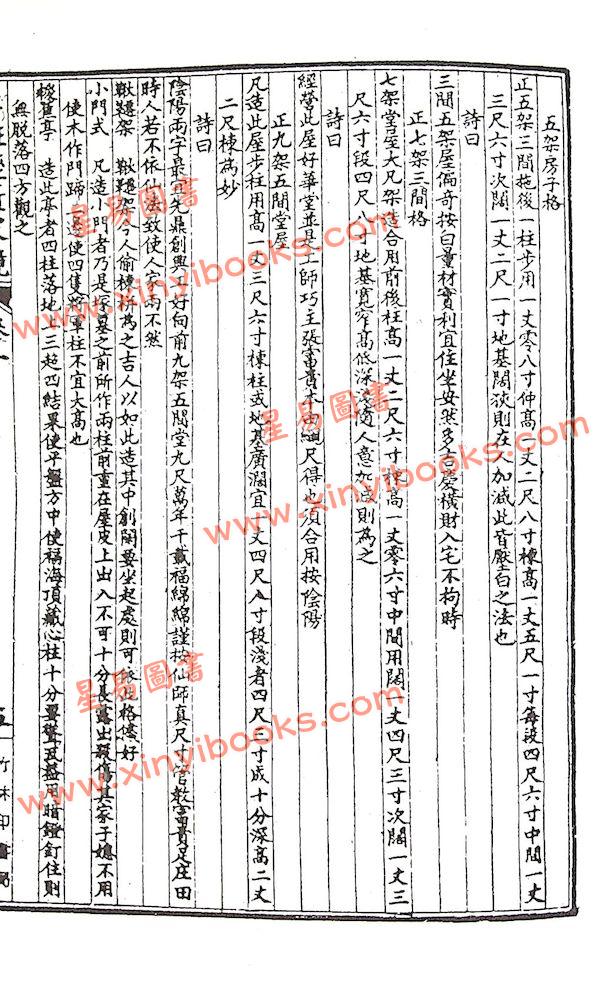 五架房子格
正五架三間拖後一柱步用一丈零八寸仲高一丈二尺八寸棟高一丈五尺一寸每段四尺六寸中間一丈
三尺六寸次闊一丈二尺一寸地基闊狹則在人加減此皆壓白之法也
詩曰
三間五架屋偏奇按白量材實利宜住坐安然多吉慶橫財入宅不拘時
正七架三間格
七架堂屋大凡架造合用前後柱高一丈二尺六寸棟高一丈零六寸中間用闊一丈四尺三寸次闊一丈三
尺六寸段四尺八寸地基寬窄高低深淺隨人意加減則為之
詩曰
經營此屋好華堂並是工師巧主張富貴本由繩尺得也須合用按陰陽
正九架五間堂屋
凡造此屋步柱用高一丈三尺六寸棟柱或地基廣濶宜一丈四尺八寸段淺者四尺三寸成十分深高二丈
二尺棟為妙
詩曰
陰陽兩字最先鼎創興工好向前九架五間堂九尺萬年千載福綿綿謹按仙師真尺寸管教富貴足庄田
時人若不依仙法致使人家兩不然
鞦韆架 鞦韆架今人偷棟枋為之吉人以如此造其中創閑要坐起處則可依此格儘好
小門式 凡造小門者乃是塚墓之前所作兩柱前重在屋皮上出入不可十分長露出殺傷其家子媳不用
使木作門蹄二邊使四隻將軍柱不宜大高也
造此亭者四柱落地上三超四結果使平盤方中使福海頂藏心柱十分要聳瓦蓋用暗鐙釘住則
無脫落四方觀之
五
竹林印書局
星易圖書
www.xinyibooks.com
星易圖書
www.xinyibooks.com
星易圖書
www.xinyibooks.com
星易圖書
www.xinyibooks.com